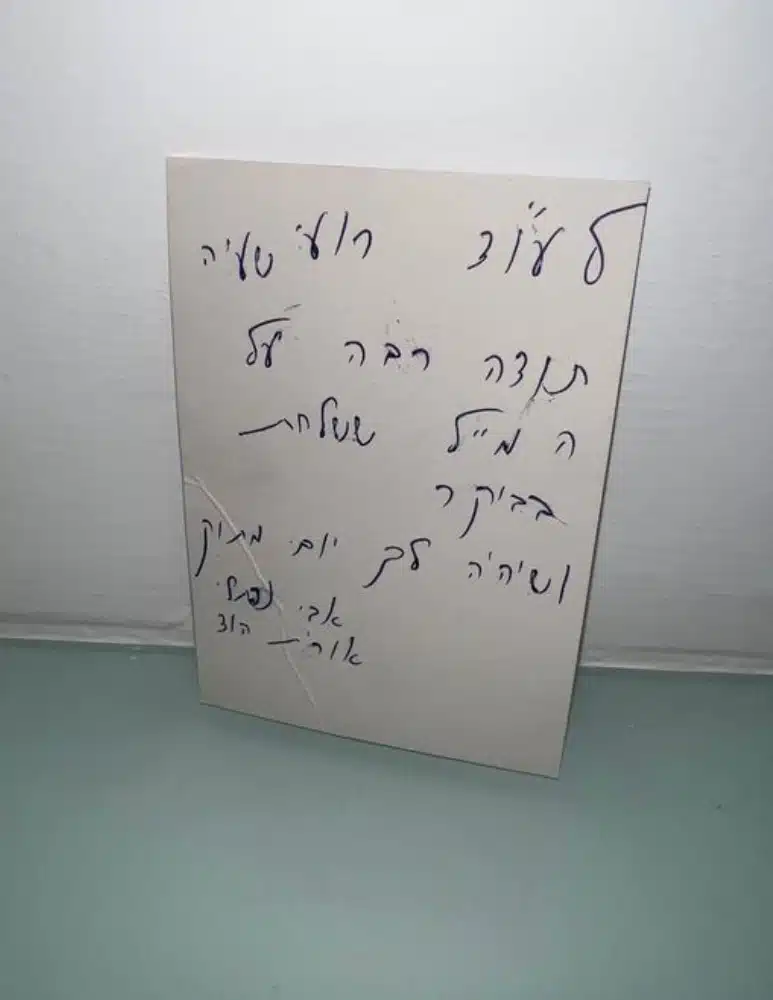 לעו״ד רועי שעיה
תודה רבה על
ה מ״יל ששלחת
בביקר
ושיהיה לך יום מתוק
אבי נפתלי
אורית הוד